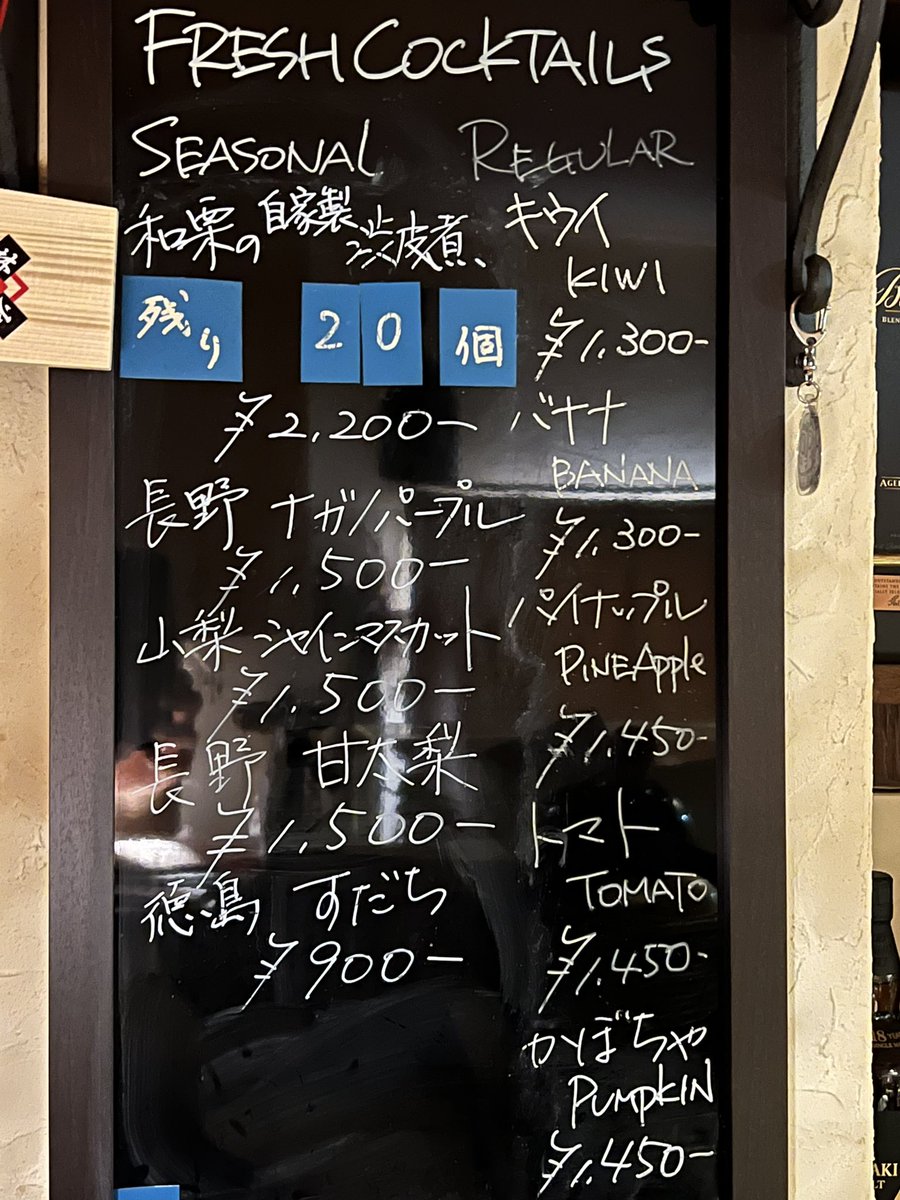 FRESH COCKTAILS
SEASONAL
和栗の自家製渋皮煮、
残り 20個
¥2,200-
長野 ナガノパープル
¥1,500-
山梨 シャインマスカット
¥1,500-
長野 甘太梨
¥1,500-
徳島 すだち
¥900-
REGULAR
キウイ
KIWI
¥1,300-
バナナ
BANANA
¥1,300-
パイナップル
PINEApple
¥1,450-
トマト
TOMATO
¥1,450-
かぼちゃ
PUMPKIN
¥1,450-